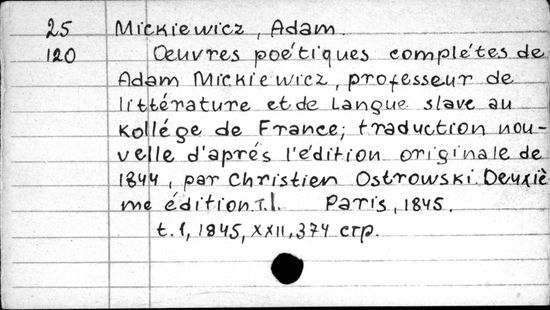 25 Mickiewicz, Adam.
120 Œuvres poétiques complétes de
Adam Mickiewicz, professeur de
littérature et de langue slave au
Kollége de France; traduction nou-
velle d'aprés l'édition originale de
1844, par Christien Ostrowski. Deuxiè
me édition. T.I. Paris, 1845.
t. 1, 1845, XXII, 374 стр.